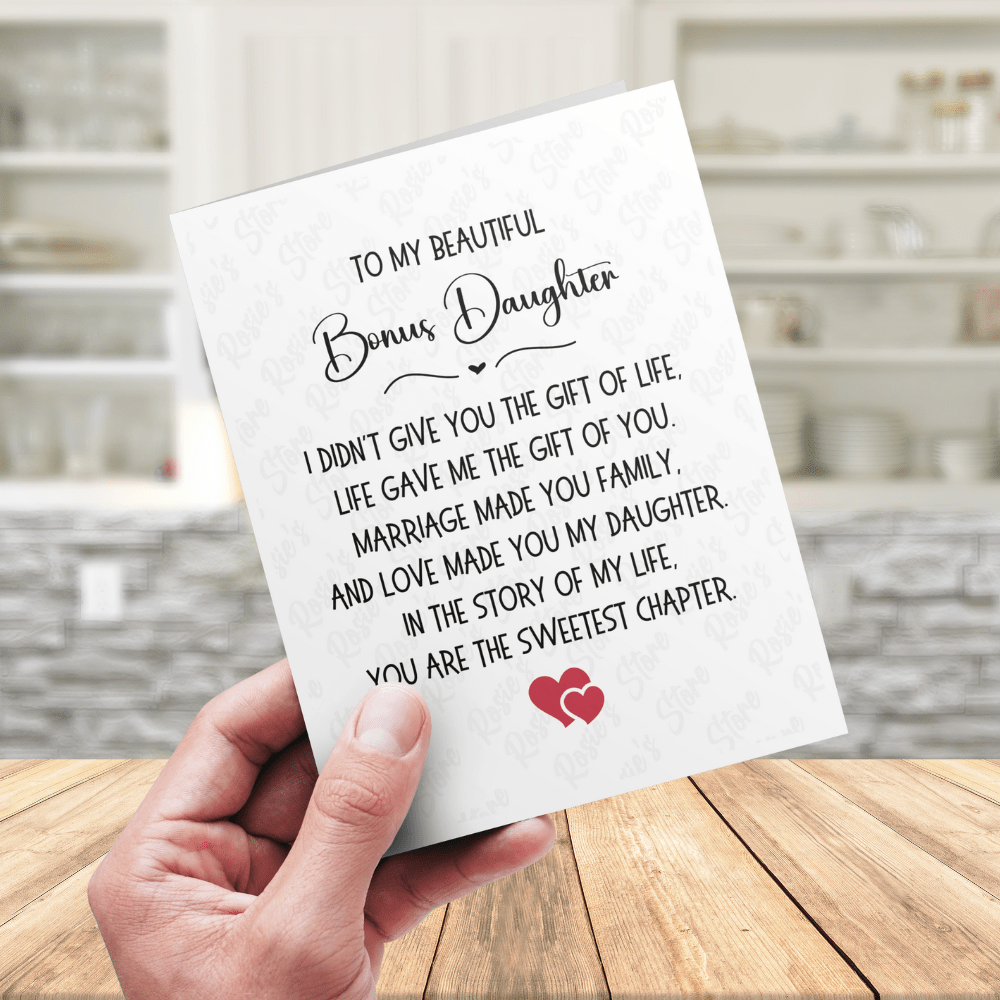 TO MY BEAUTIFUL
Bonus Daughter
I DIDN'T GIVE YOU THE GIFT OF LIFE,
LIFE GAVE ME THE GIFT OF YOU.
MARRIAGE MADE YOU FAMILY,
AND LOVE MADE YOU MY DAUGHTER.
IN THE STORY OF MY LIFE,
YOU ARE THE SWEETEST CHAPTER.
Rosie's Store